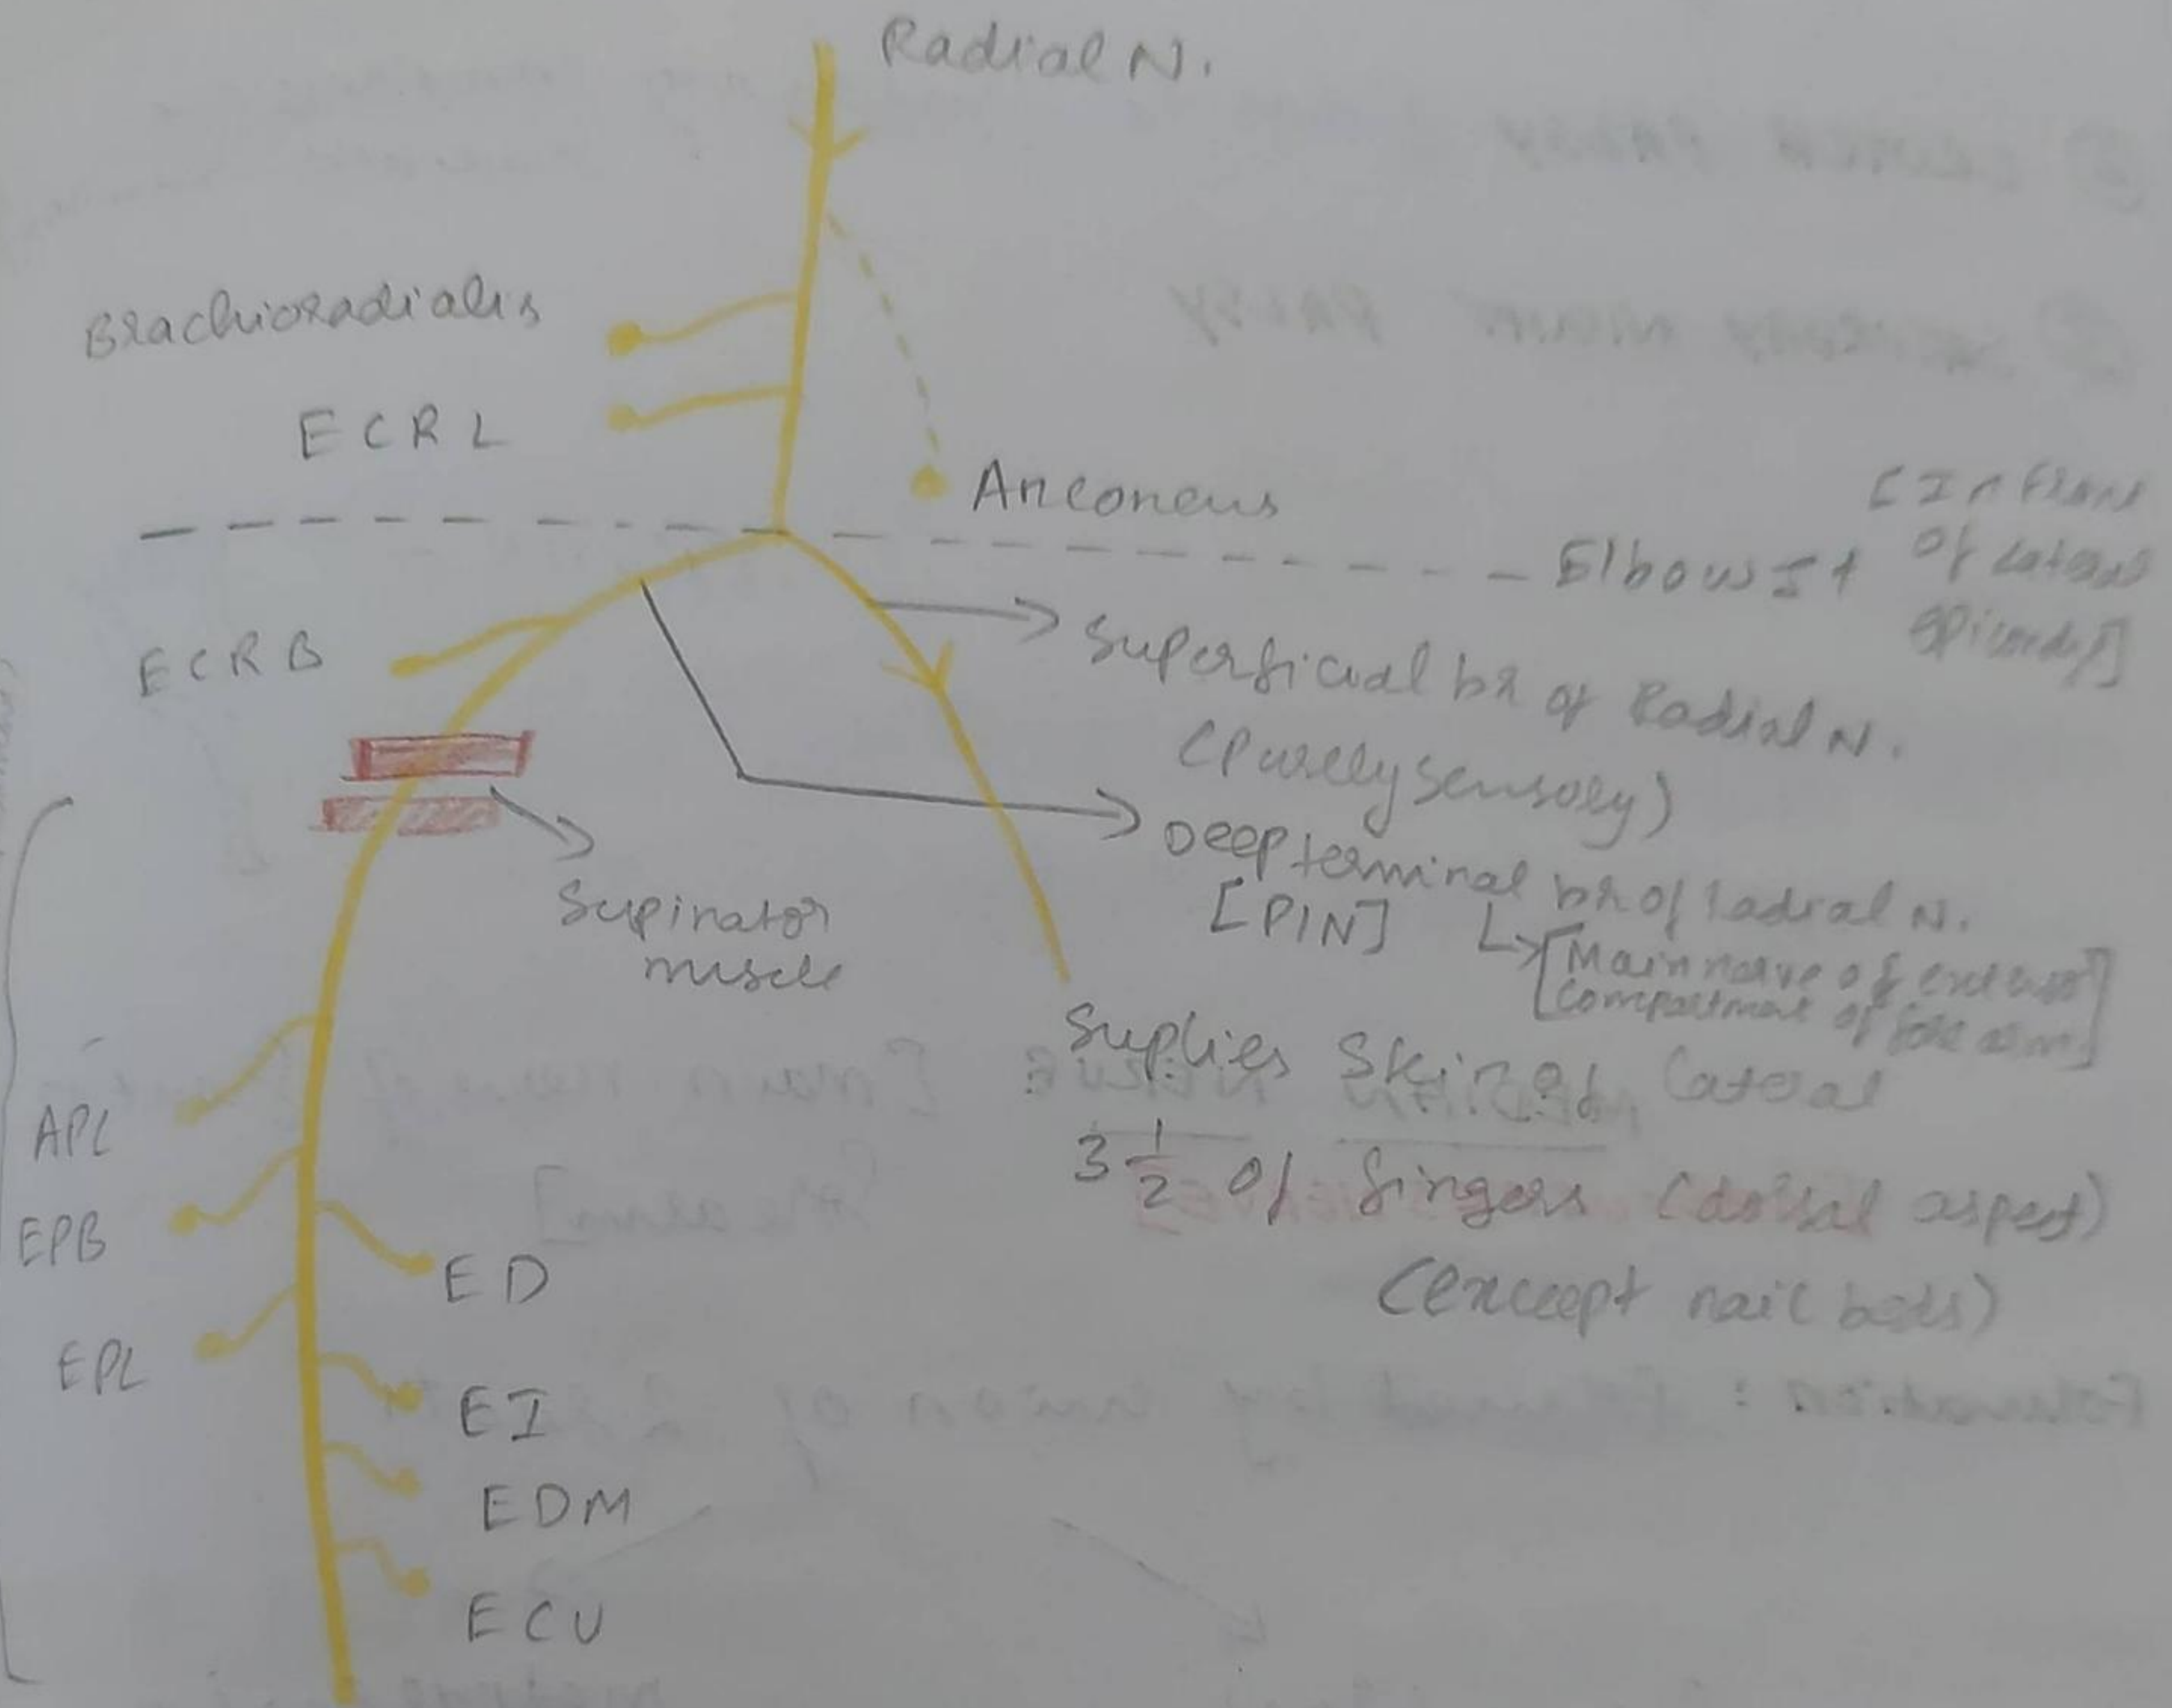 Radial N.
Brachioradialis
ECRL
Anconeus
Elbow Jt
[In front
of lateral
epicondy]
ECRB
Superficial br of Radial N.
(Purely sensory)
Deep terminal br of radial N.
[PIN]
[Main nerve of
compartment of fore arm]
Supinator
muscle
Suplies Skin of lateral
3 1/2 of fingers (dorsal aspect)
(except nail beds)
APL
EPB
ED
EPL
EI
EDM
ECU